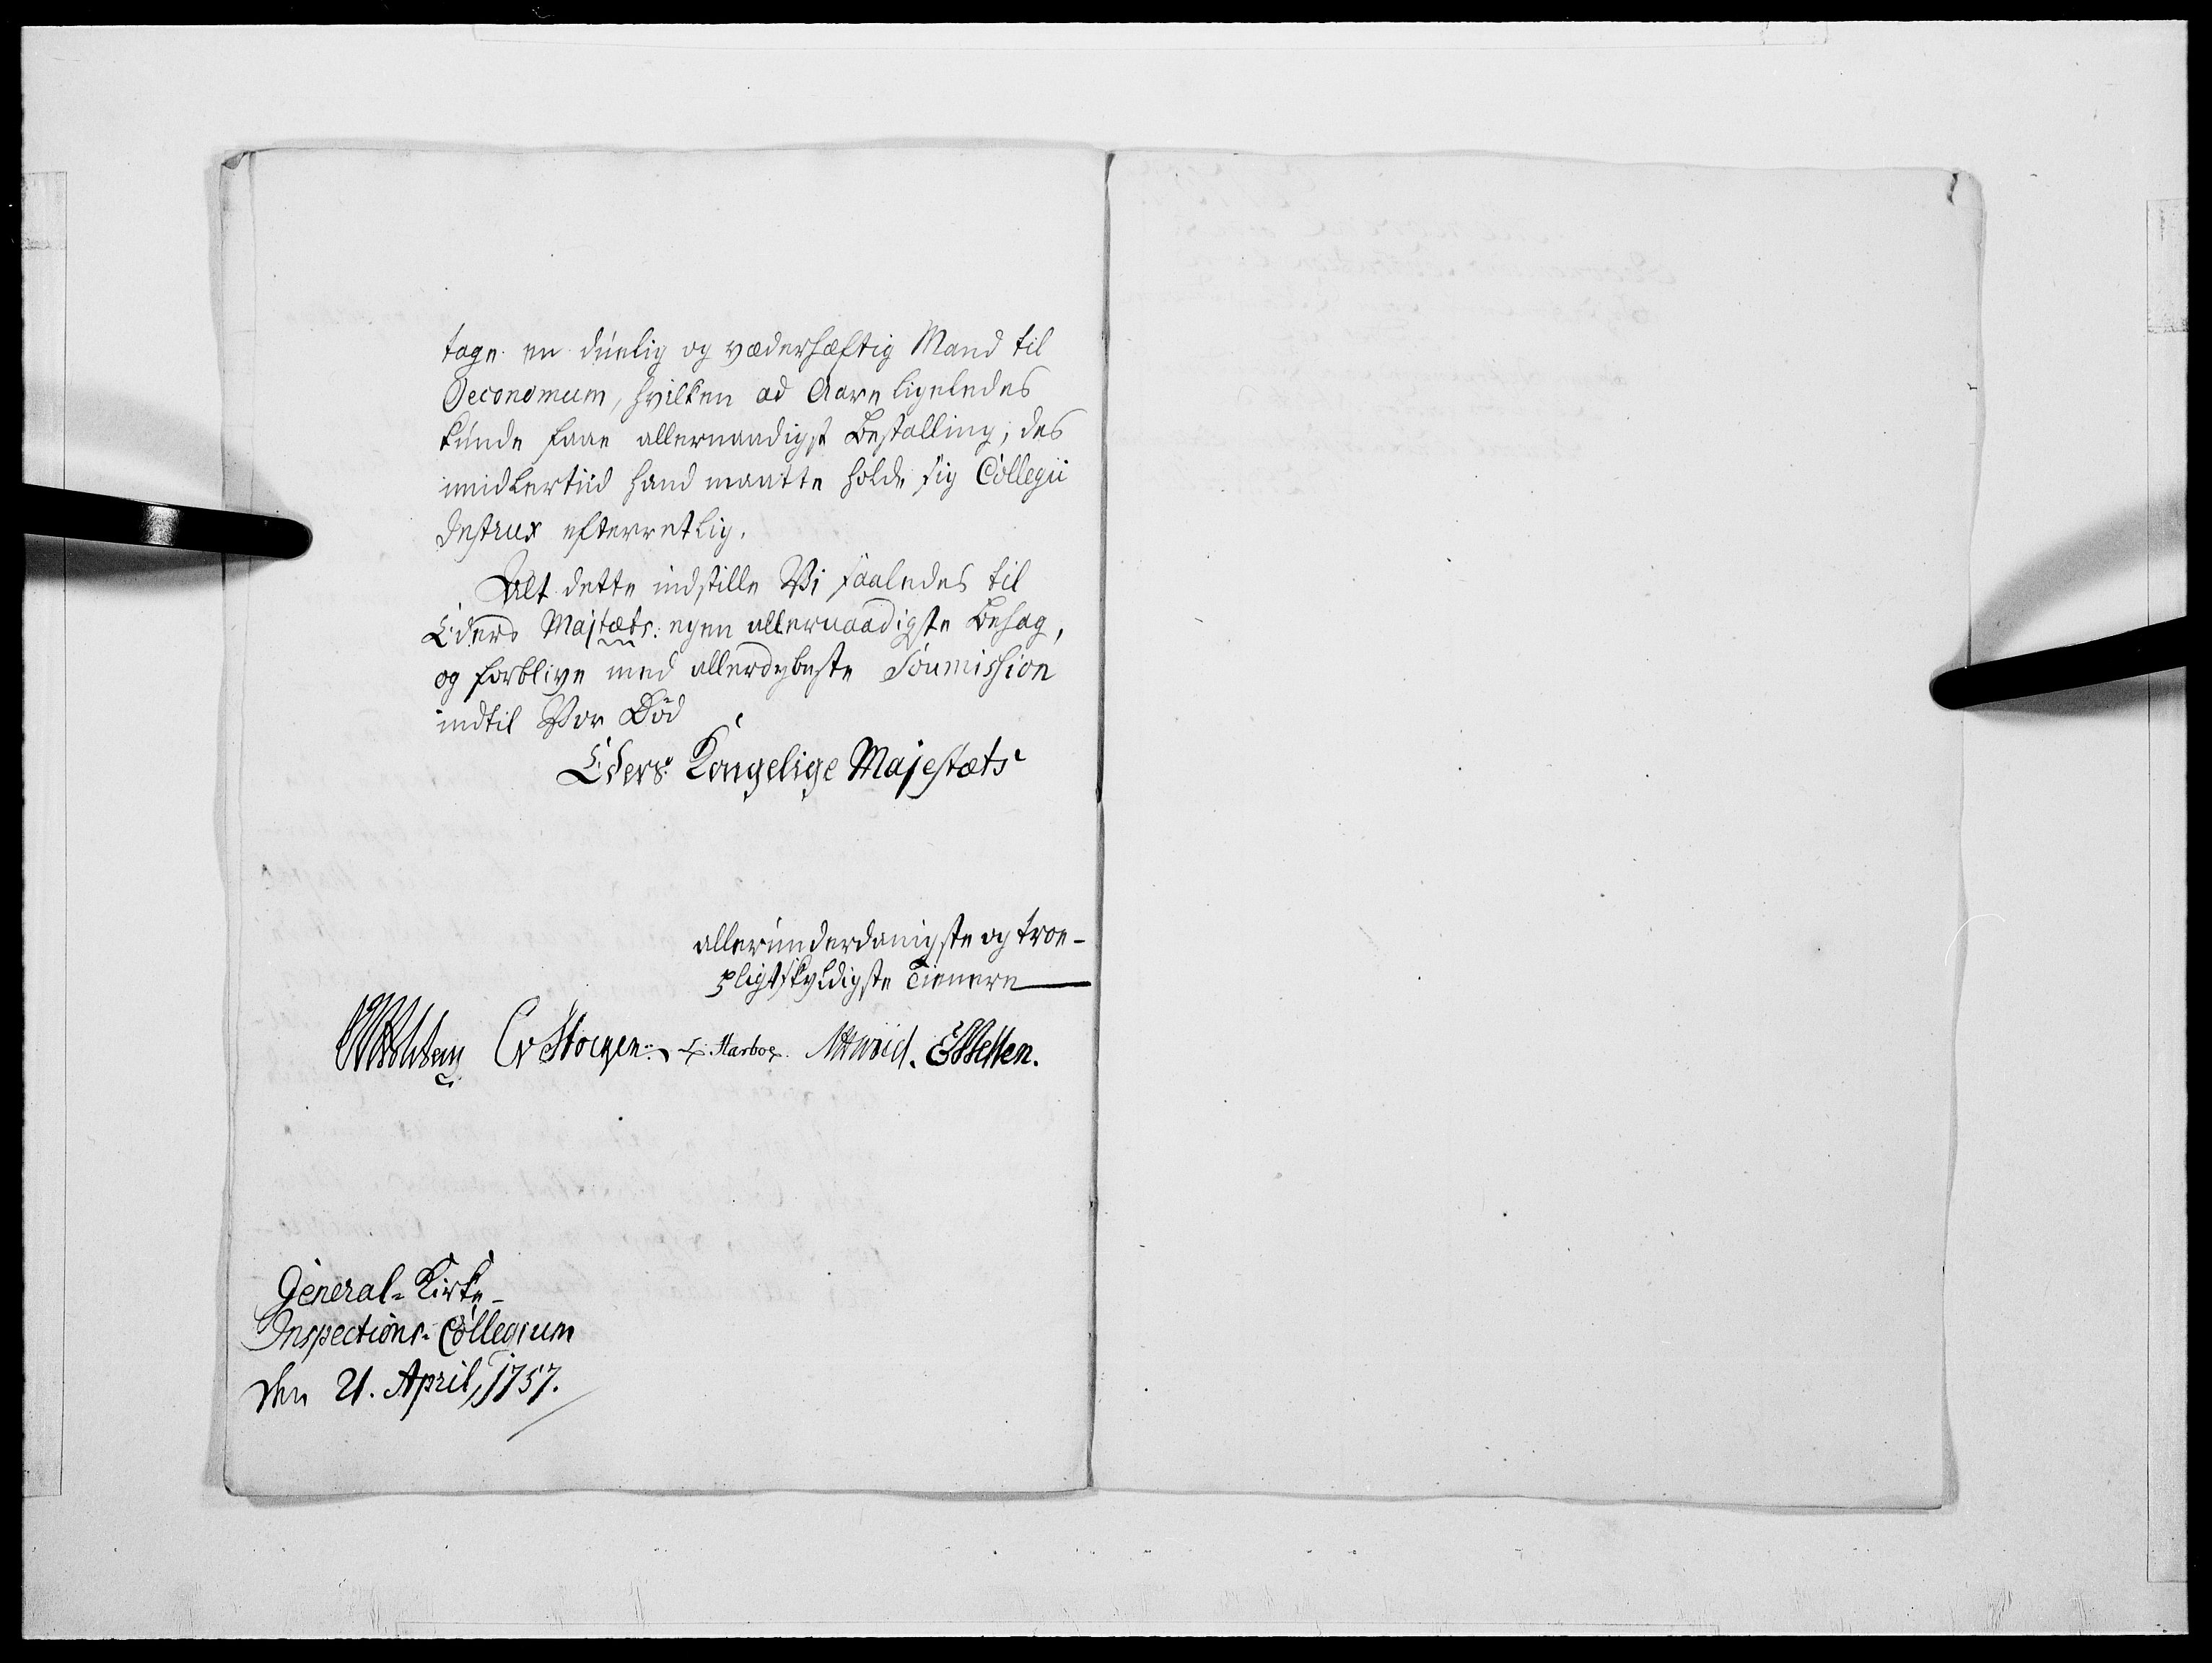 tage en duelig og væderhæftig Mand til
Oeconomum, hvilken ad Aare ligeledes
kunde faae allernaadigst Bestalling; des
imidlertiid hand maatte holde sig Collegii
Instrux efterretlig.
Alt dette indstille Vi saaledes til
Eders Majtæts: egen allernaadigste Behag,
og forblive med allerdybeste Soumission
indtil Vor Död
Eders Kongelige Majestæts
allerunderdanigste og troe-
pligtskyldigste Tienere
Holstein Cv Stocken L: Harboe. E Jessen.
General-Kirke-
Inspections-Collegium
den 21. April, 1757.